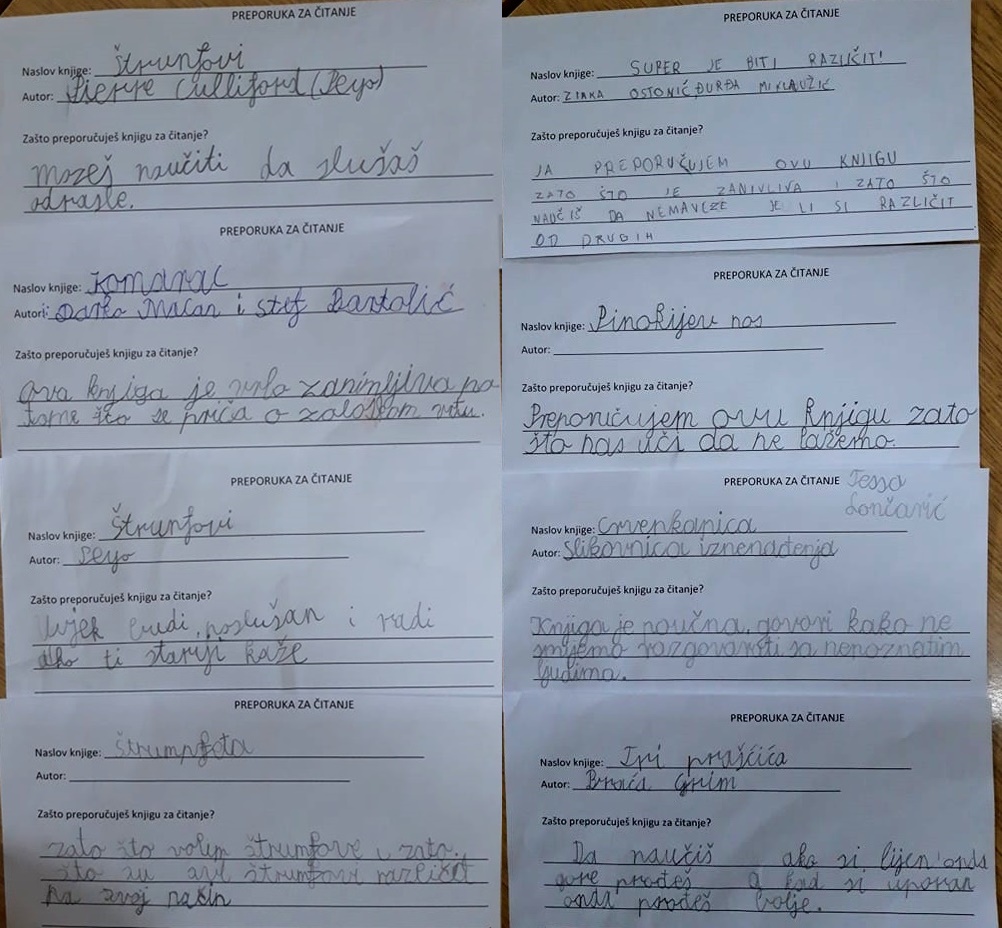 PREPORUKA ZA ČITANJE
Naslov knjige: Štrunfovi
Autor: Pierre Culliford (Peyo)
Zašto preporučuješ knjigu za čitanje?
mozeš naučiti da slušaš
odrasle.
PREPORUKA ZA ČITANJE
Naslov knjige: Komarac
Autori: Darko Macan i Stef Bartolić
Zašto preporučuješ knjigu za čitanje?
Ova knjiga je vrlo zanimljiva po
tome što se priča o
PREPORUKA ZA ČITANJE
Naslov knjige: Štrunfovi
Autor: Peyo
Zašto preporučuješ knjigu za čitanje?
Uvjek budi poslušan i radi
ako ti stariji kaže
PREPORUKA ZA ČITANJE
Naslov knjige: Štrumpfeta
Autor:
Zašto preporučuješ knjigu za čitanje?
zato što volim štrumfove i zato
što su svi štrumfovi različit
na svoj način
PREPORUKA ZA ČITANJE
Naslov knjige: SUPER JE BITI RAZLIČIT!
Autor: ZINKA OSTONIĆ, ĐURĐA MIKLAUŽIĆ
Zašto preporučuješ knjigu za čitanje?
JA PREPORUČUJEM OVU KNJIGU
ZATO ŠTO JE ZANIVLIVA I ZATO ŠTO
NAUČIŠ DA NEMAVEZE JE LI SI RAZLIČIT
OD DRUGIH
PREPORUKA ZA ČITANJE
Naslov knjige: Pinokijev nos
Autor:
Zašto preporučuješ knjigu za čitanje?
Preporučujem ovu knjigu zato
što nas uči da ne lažemo.
PREPORUKA ZA ČITANJE Tessa
Lončarić
Naslov knjige: Crvenkapica
Autor: Slikovnica iznenađenja
Zašto preporučuješ knjigu za čitanje?
Knjiga je poučna, govori kako ne
smijemo razgovarati sa nepoznatim
ljudima.
PREPORUKA ZA ČITANJE
Naslov knjige: Tri praščića
Autor: Braća Grim
Zašto preporučuješ knjigu za čitanje?
Da naučiš ako si lijen onda
gore prođeš a kad si uporan
onda prođeš bolje.